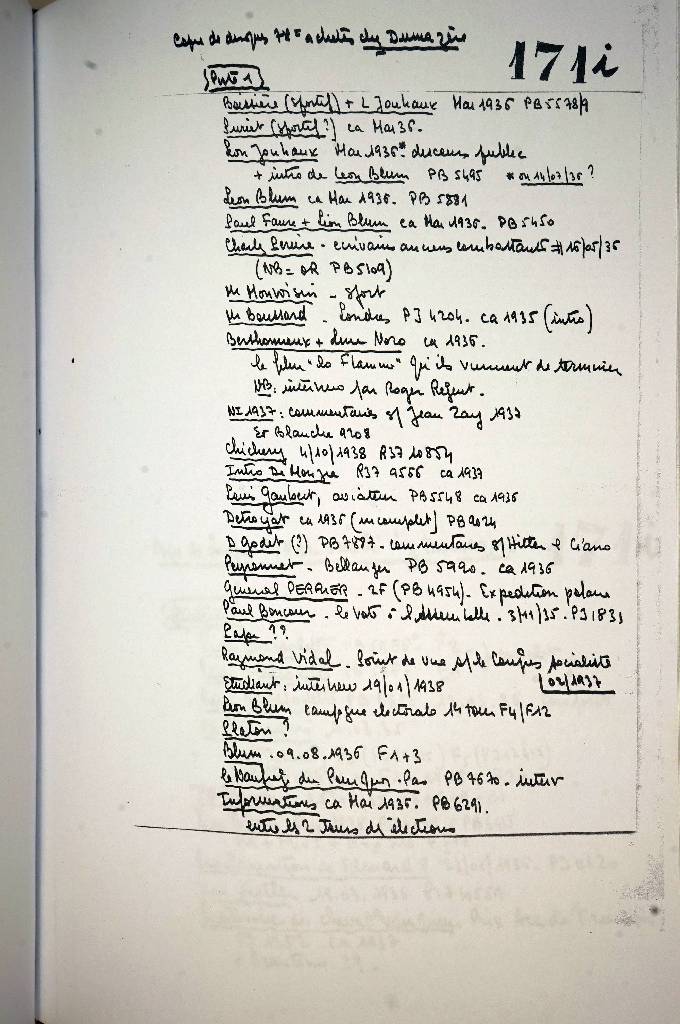 Copie de disques 78 T achetés chez Dumazère
171i
Piste 1
Boissière (sportif) + L Jouhaux Mai 1936 PB 5578/9
(sportif?) ca Mai 36.
Léon Jouhaux Mai 1936* discours public
+ intro de Léon Blum PB 5495 * ou 14/07/36 ?
Léon Blum ca Mai 1936. PB 5881
Paul Faure + Léon Blum ca Mai 1936. PB 5450
Charly - écrivains anciens combattants # 16/05/36
(NB = OR PB 5109)
Mr Monvoisin - sport
Mr Boussard - Londres PJ 4204. ca 1935 (intro)
Berthomieux + Line Noro ca 1936.
le film "la Flamme" qu'ils viennent de terminer
NB: interview par Roger Régent.
NI 1937: commentaires s/ Jean Zay 1937
Et Blanche 9208
Chichery 4/10/1938 R37 10854
Intro De Monzie R37 9556 ca 1937
Louis Gaubert, aviateur PB 5548 ca 1936
Detroyat ca 1936 (incomplet) PB 2024
D Godet (?) PB 7887. commentaires s/ Hitler & Ciano
Peyronnet - Bellanger PB 5990. ca 1936
Général PERRIER - 2F (PB 4954). Expédition polaire
Paul Boncour - le vote à l'Assemblée. 3/11/35. PJ 1831
??
Raymond Vidal. Point de vue s/ le Congrès socialiste
Etudiant: interview 19/01/1938 02/1937
Léon Blum campagne électorale 1er tour F4/F12
Platon ?
Blum. 09.08.1936 F1+3
le Naufrage du Pourquoi-Pas PB 7670. interv
Informations ca Mai 1936. PB 6291.
entre les 2 tours des élections